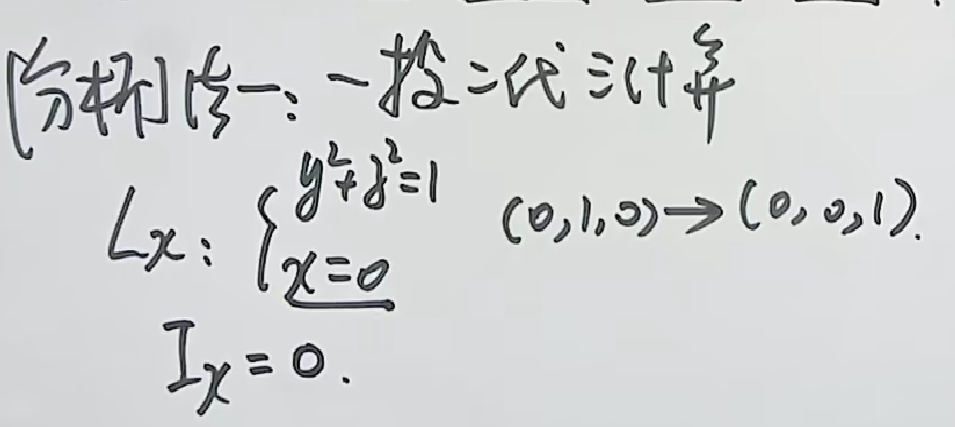 [分析]法一:一投二代三计算
Lx: { y²+z²=1
x=0 (0,1,0)→(0,0,1).
Ix=0.